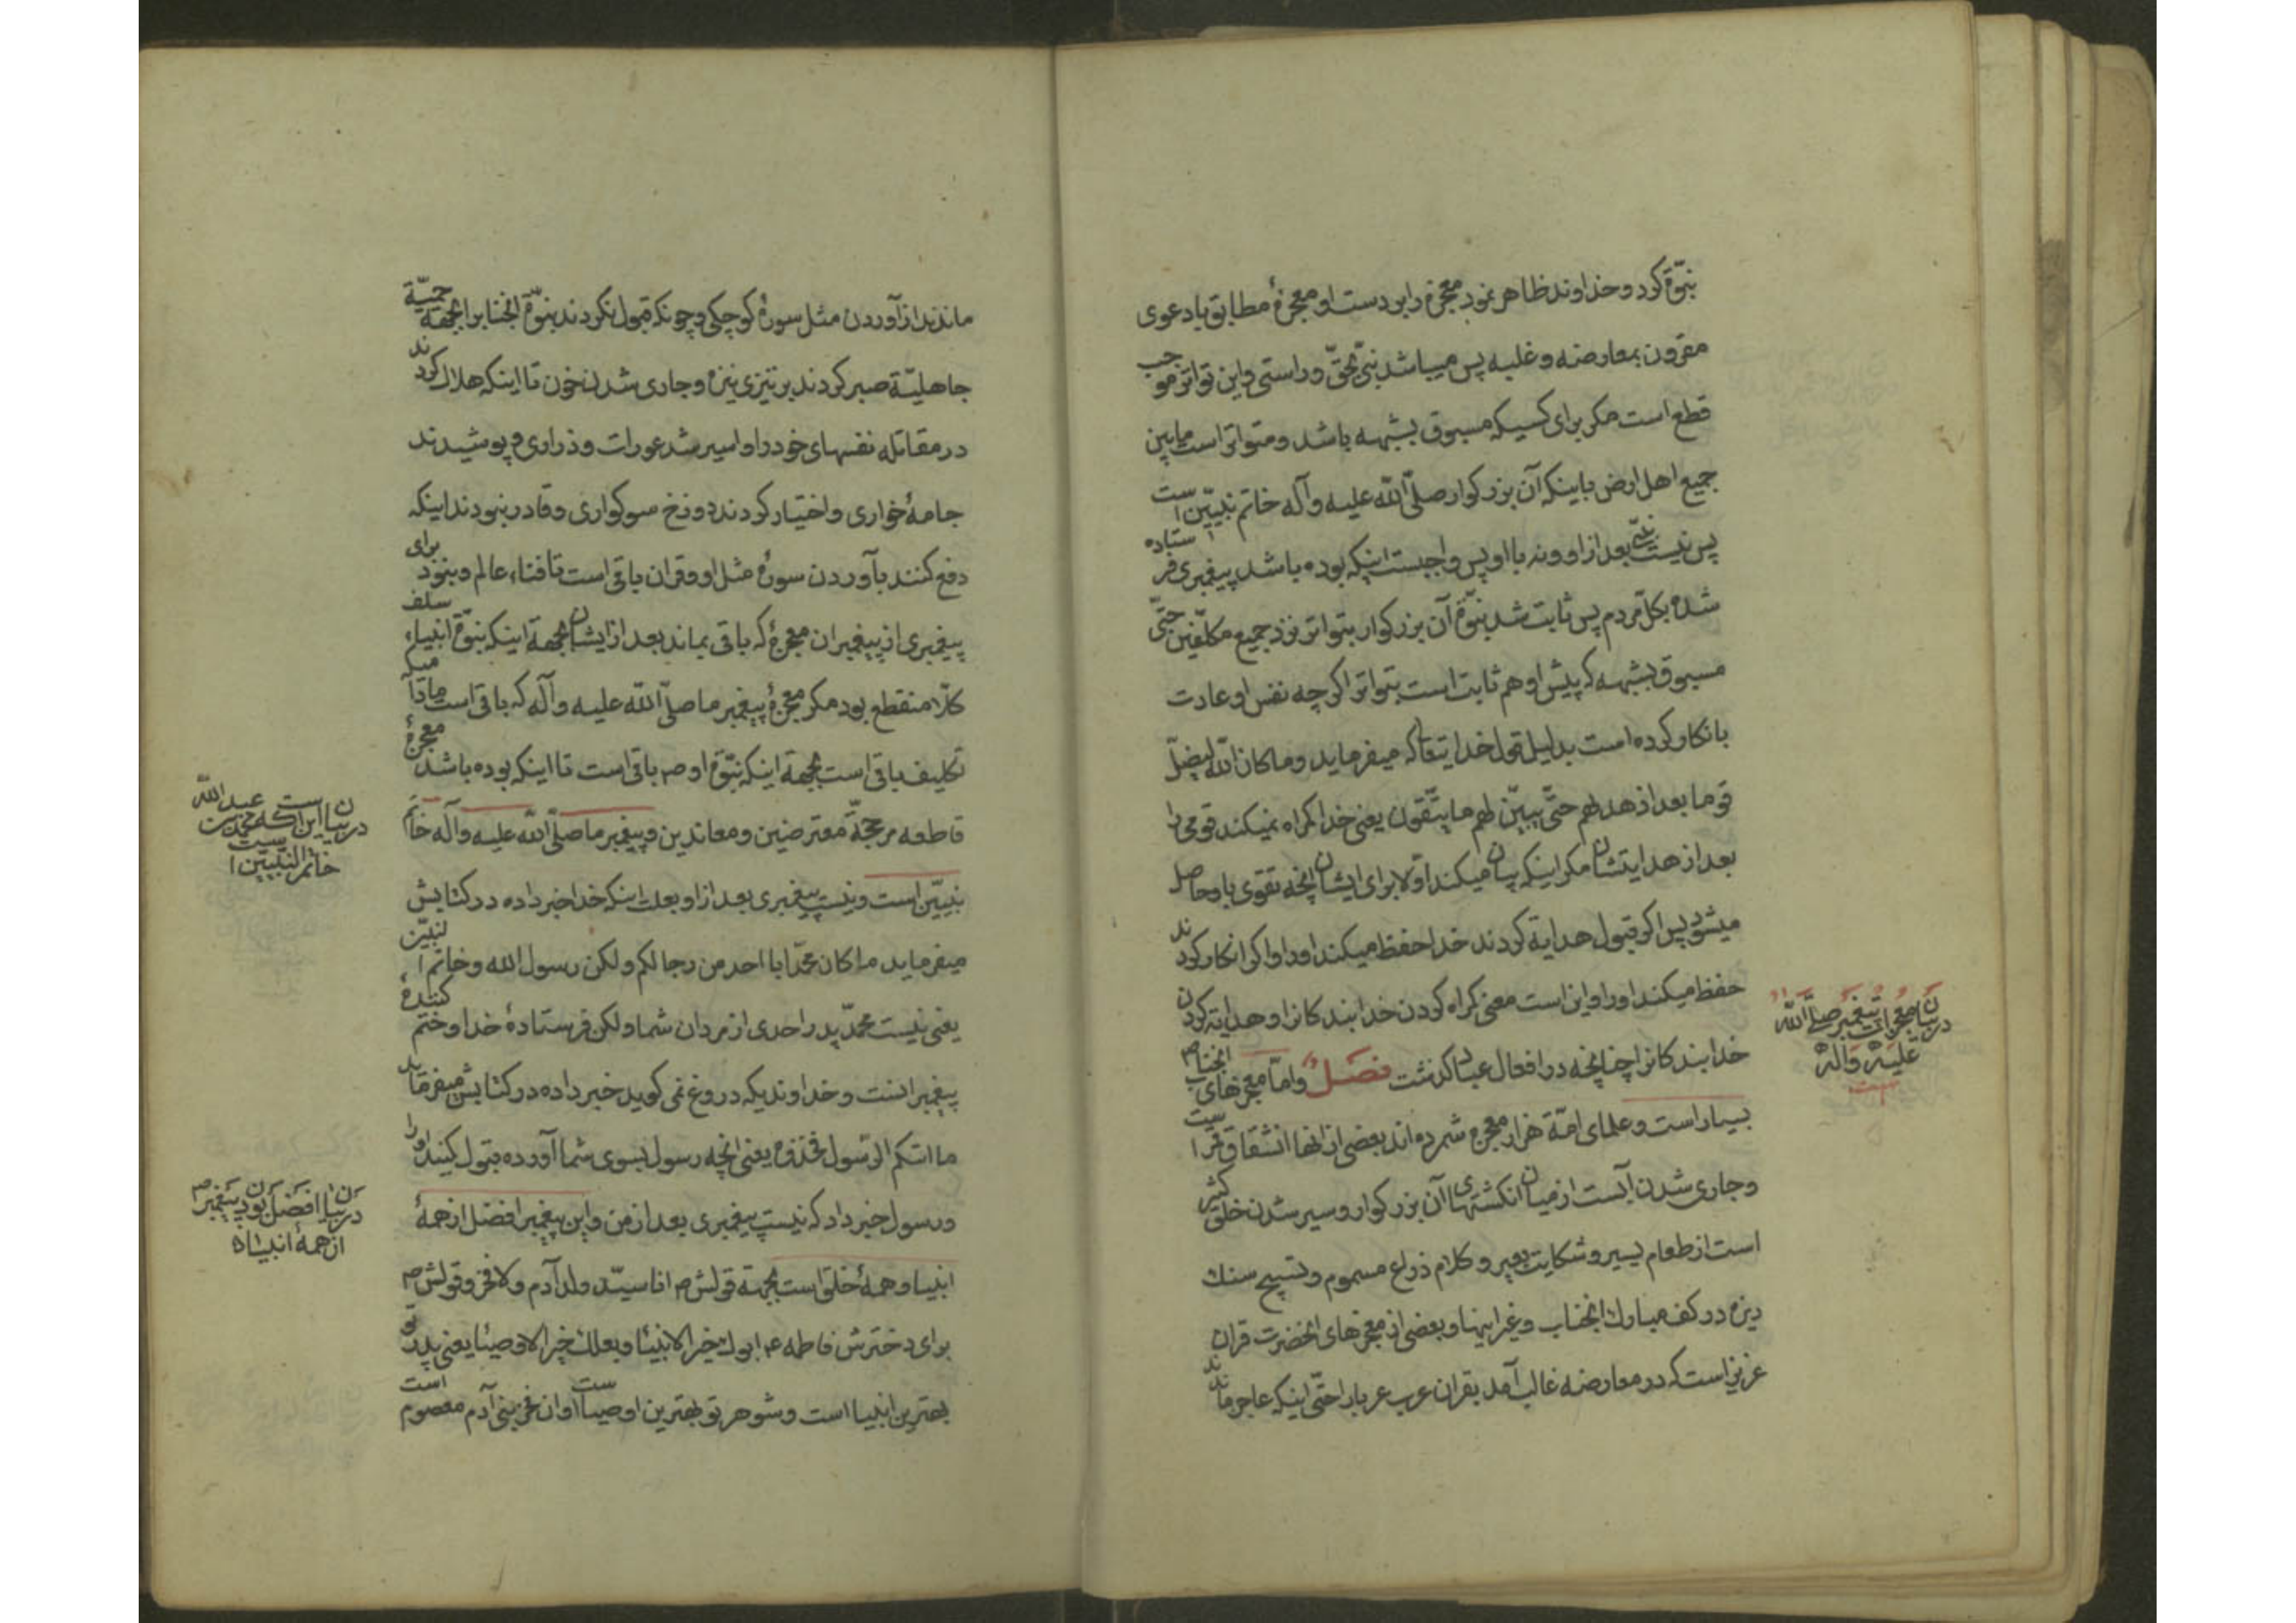 نبوّة کرد و خداوند ظاهر نمود معجزه را بر دست او معجزهٔ مطابق با دعوی
مقرون بمعارضه و غلبه پس میباشد نبیّ بحقّ و راستی و این تواتر موجب
قطع است مکر برای کسیکه مسبوق بشبهه باشد و متواتر است مابین
جمیع اهل ارض باینکه آن بزرکوار صلّی اللّه علیه و آله خاتم نبیّین است
پس نیست نبیّ بعد از او و نه با او پس واجبست اینکه بوده باشد پیغمبری فرستاده
شده بکلّ مردم پس ثابت شد نبوّة آن بزرکوار بتواتر نزد جمیع مکلّفین حتّی
مسبوق بشبهه که پیش او هم ثابت است بتواتر اکرچه نفس او عادت
بانکار کرده است بدلیل قول خدایتعا که میفرماید و ما کان اللّه لیضلّ
قوما بعد اذ هدیهم حتّی یبیّن لهم ما یتّقون یعنی خدا کمراه نمیکند قومی را
بعد از هدایتشان مکر اینکه بیان میکند اوّلا برای ایشان انچه تقوی باو حاصل
میشود پس اکر قبول هدایة کردند خدا حفظ میکند اورا و اکر انکار کردند
حفظ میکند اورا و این است معنی کمراه کردن خدا بندکانرا و هدایة کردن
خدا بندکانرا چنانچه در افعال عباد کذشت فصل و امّا معجزهای انجناب ص
بسیار است و علمای امّة هزار معجزه شمرده اند بعضی از انها انشقاق قمر است
و جاری شدن آبست از میان انکشتهای آن بزرکوار و سیر شدن خلق کثیر
است از طعام یسیر و شکایت بعیر و کلام ذراع مسموم و تسبیح سنك
ریزه در کف مبارك انجناب و غیر اینها و بعضی از معجزهای انحضرت قران
عزیز است که در معارضه غالب آمد بقران عرب عربارا حتّی اینکه عاجز ماندند
در بیان معجزات پیغمبر صلّی اللّه
علیه و آله
است
ماندند از آوردن مثل سورهٔ کوچکی و چونکه قبول نکردند نبوّة انجنابرا بجهة حمیّة
جاهلیّة صبر کردند بر تیزی نیزه و جاری شدن خون تا اینکه هلاك کردند
در مقاتله نفسهای خود را و اسیر شد عورات و ذراری و پوشیدند
جامهٔ خواری و اختیار کردند دوزخ سوکواری و قادر نبودند اینکه
دفع کنند بآوردن سورهٔ مثل او و قران باقی است تا فناء عالم و نبود برای
پیغمبری از پیغمبران معجزهٔ که باقی بماند بعد از ایشان بجهة اینکه نبوّة انبیاء سلف
کلّا منقطع بود مکر معجزهٔ پیغمبر ما صلّی اللّه علیه و آله که باقی است مادامیکه
تکلیف باقی است بجهة اینکه نبوّة او ص باقی است تا اینکه بوده باشد معجزهٔ
قاطعه مر حجّة معترضین و معاندین و پیغمبر ما صلّی اللّه علیه و آله خاتم
نبیّین است و نیست پیغمبری بعد از او بعلت اینکه خدا خبر داده در کتابش
میفرماید ما کان محمّد ابا احد من رجالکم و لکن رسول اللّه و خاتم النبیّین
یعنی نیست محمّد پدر احدی از مردان شما و لکن فرستادهٔ خدا و ختم کنندهٔ
پیغمبرانست و خداوندیکه دروغ نمی کوید خبر داده در کتابش میفرماید
ما اتیکم الرّسول فخذوه یعنی انچه رسول بسوی شما آورده قبول کنید اورا
و رسول خبر داد که نیست پیغمبری بعد از من و این پیغمبر افضل از همهٔ
انبیا و همهٔ خلق است بجهة قولش ص انا سیّد ولد آدم و لا فخر و قولش ص
برای دخترش فاطمه ع ابوك خیر الانبیئا و بعلك خیر الاوصیئا یعنی پدر تو
بهترین انبیا است و شوهر تو بهترین اوصیا است و ان فخر بنی آدم معصوم است
در بیان این است که محمّد بن عبد اللّه
خاتم النّبیّین است
در بیان افضل بودن پیغمبر ص
از همهٔ انبیاء